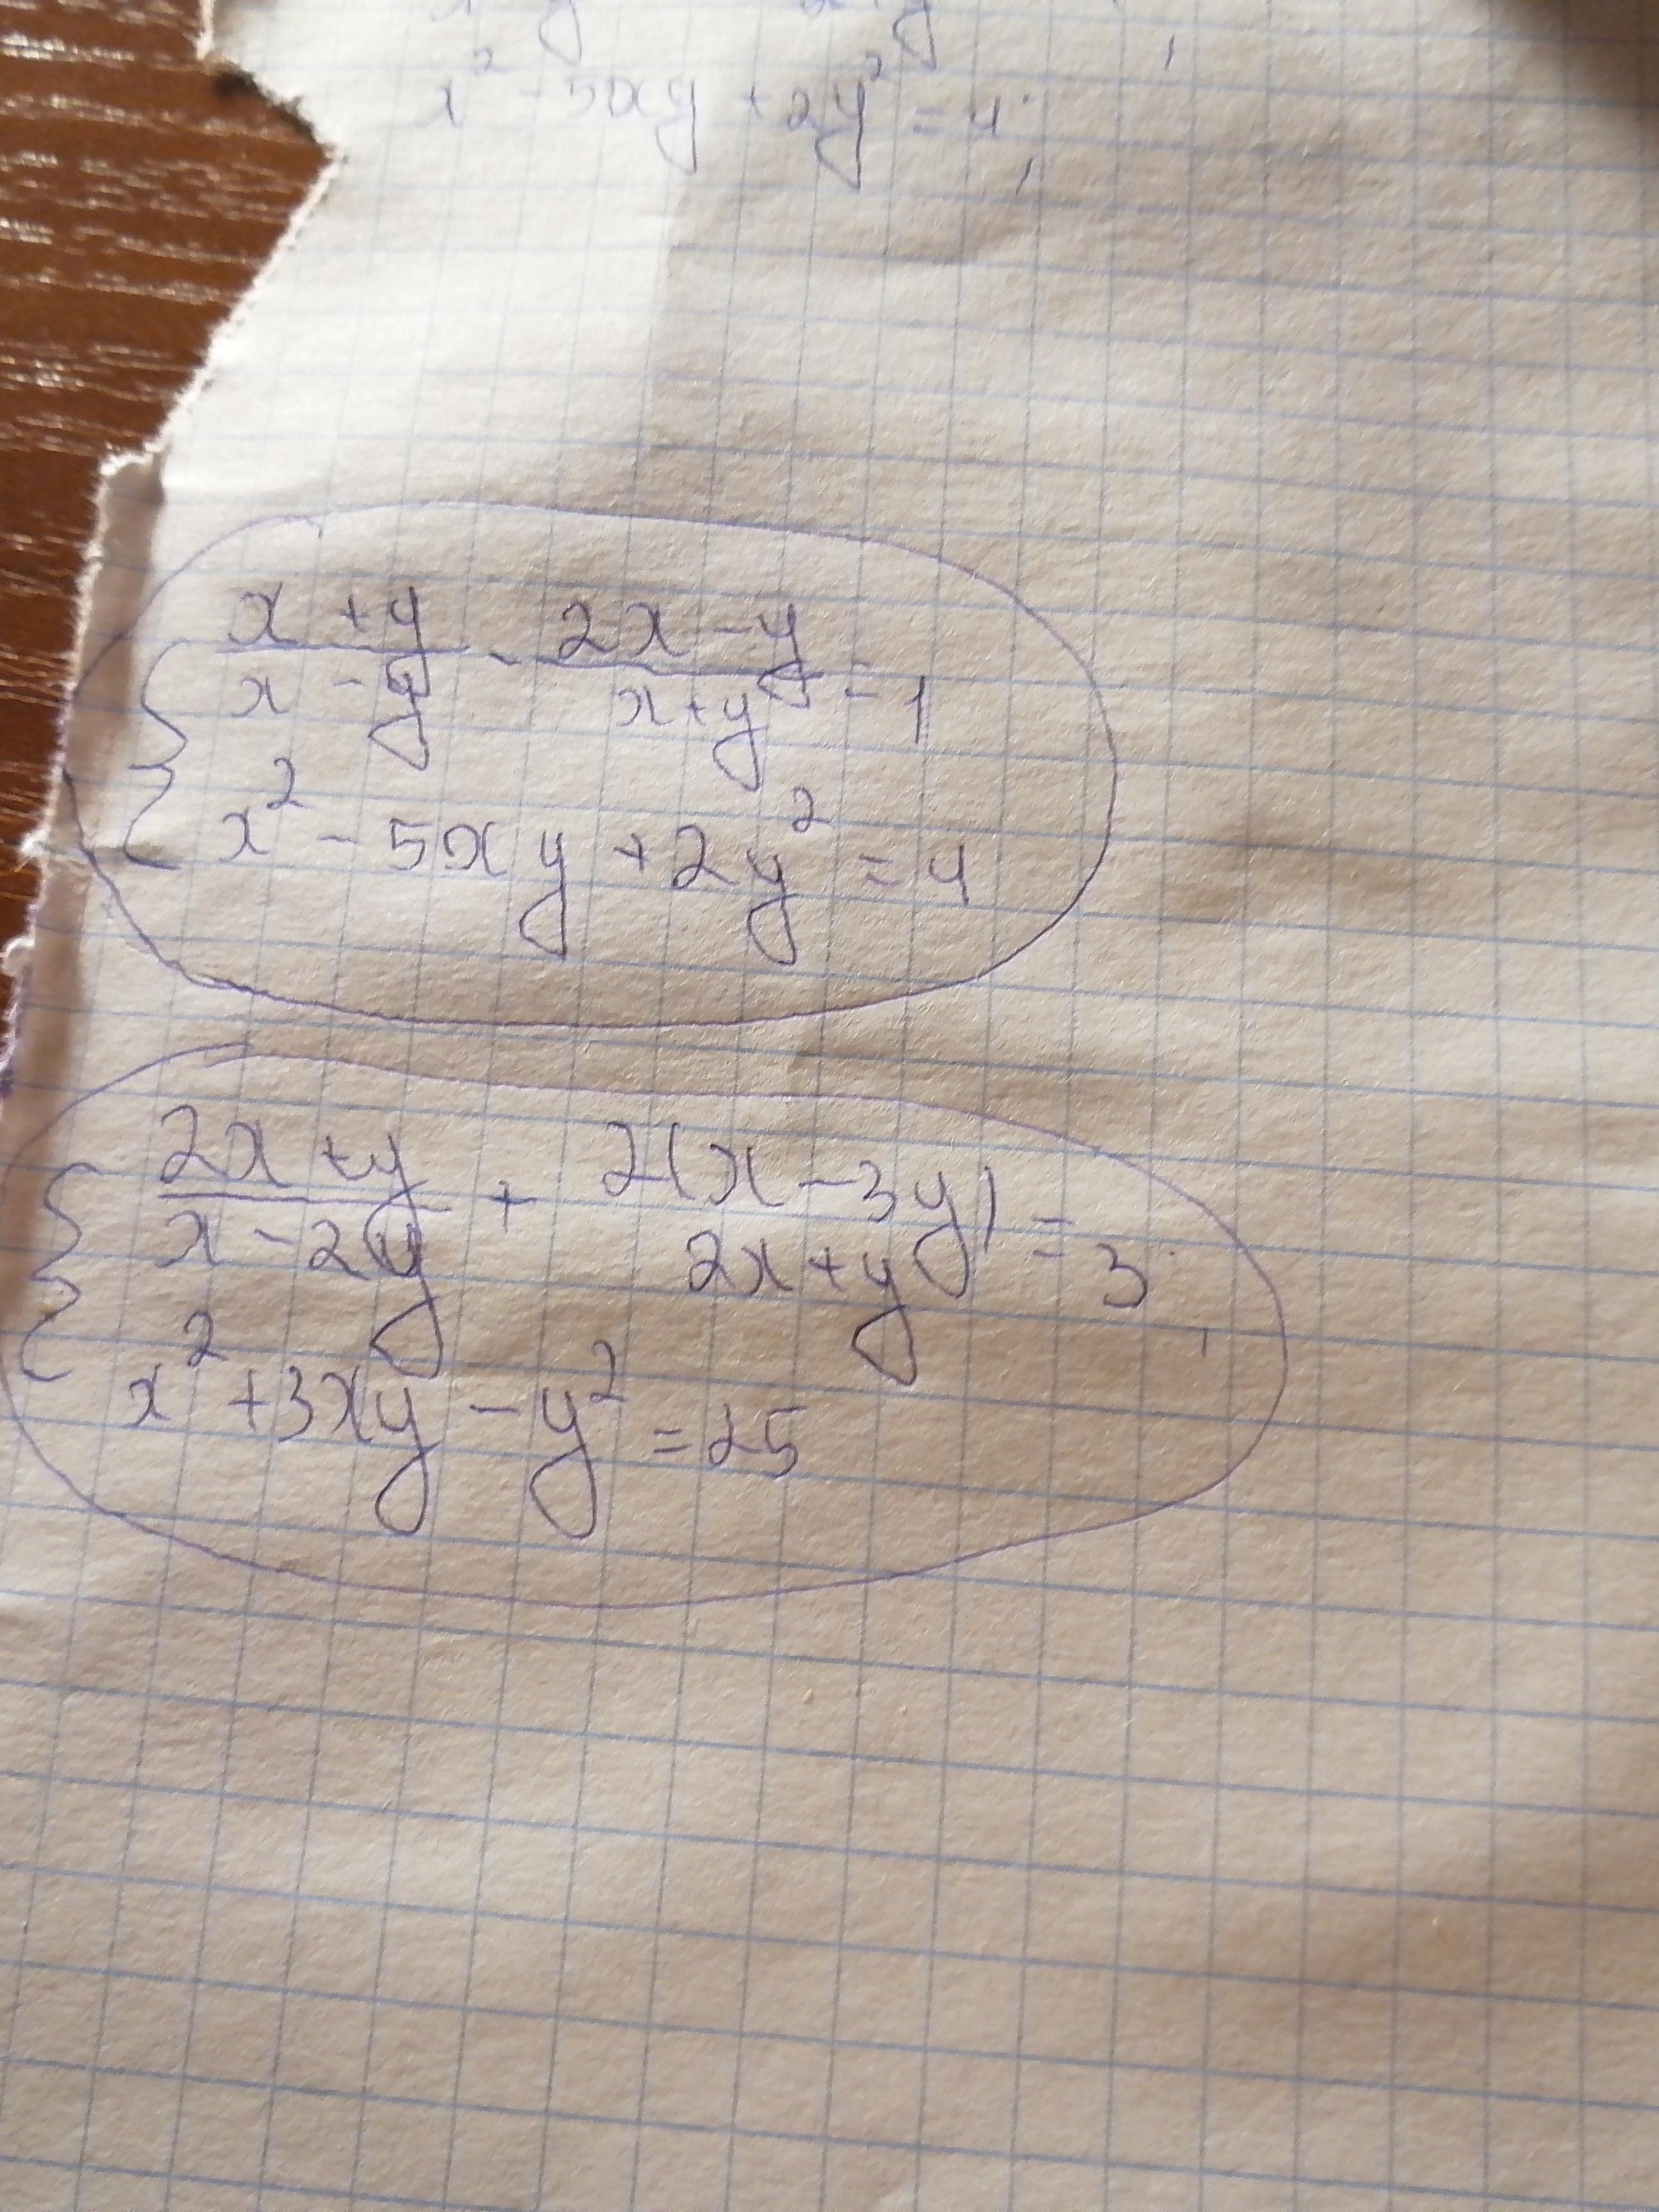 x² - 5xy + 2y² = 4;
{ (x + y)/(x - y) - (2x - y)/(x + y) = 1
x² - 5xy + 2y² = 4
{ (2x + y)/(x - 2y) + 2(x - 3y)/2x + y = 3;
x² + 3xy - y² = 25